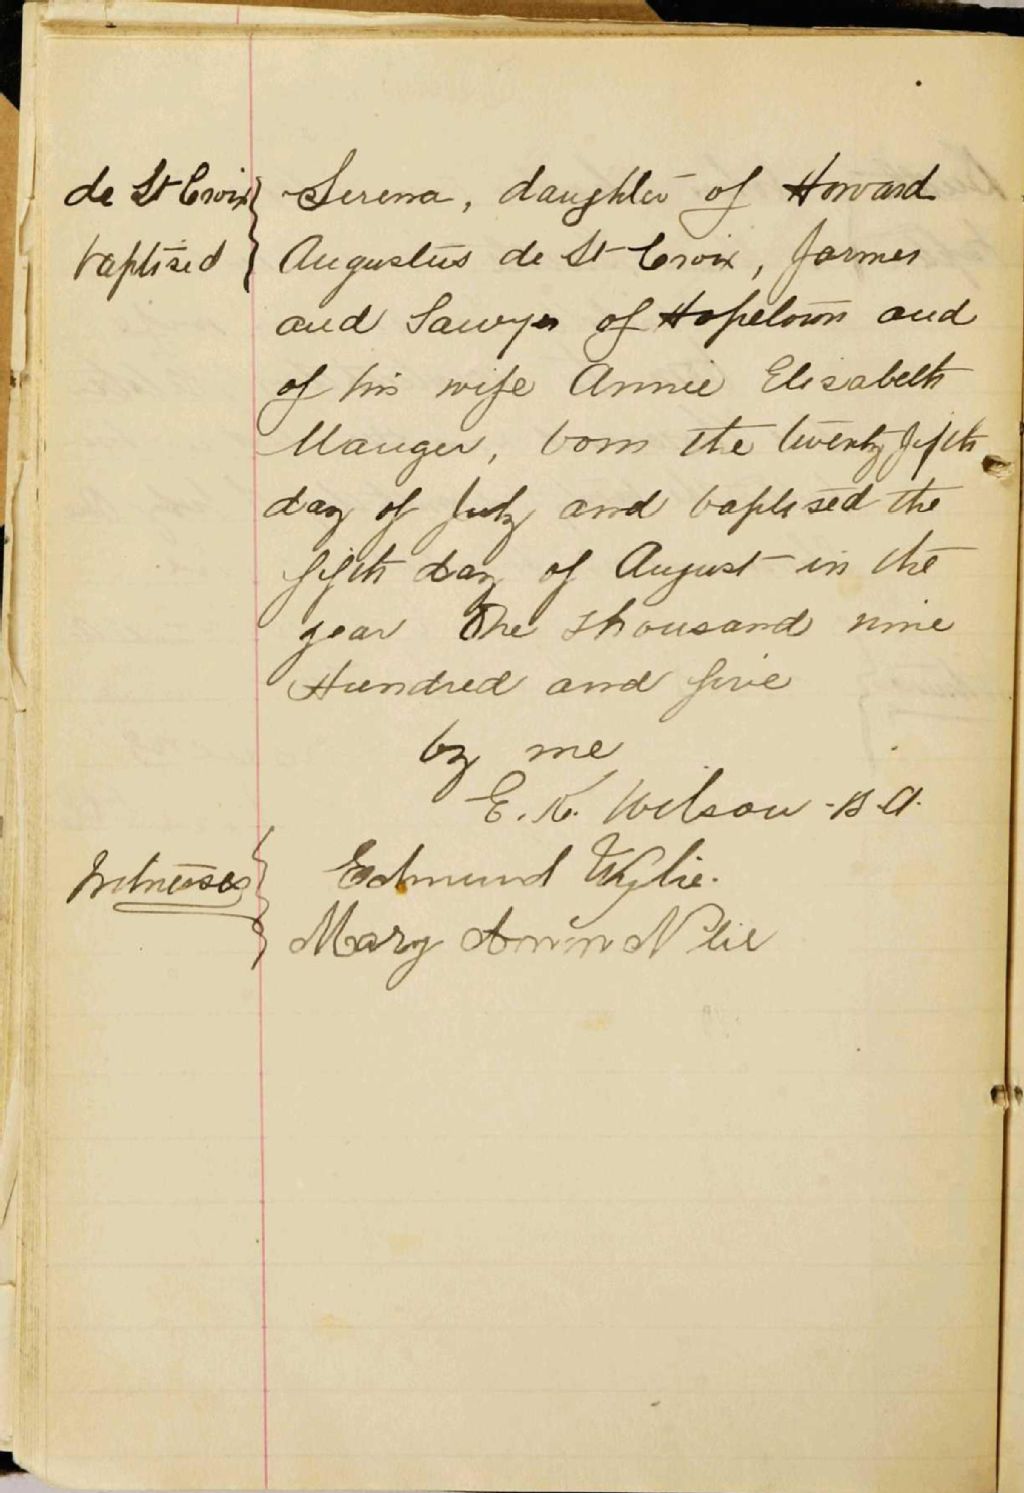 de St Croix
baptised
Serena, daughter of Howard
Augustus de St Croix, farmer
and Sawyer of Hopetown and
of his wife Annie Elisabeth
Mauger, born the twenty fifth
day of July and baptised the
fifth day of August in the
year One thousand nine
Hundred and five
by me
E. K. Wilson - B.A.
Witnesses
Edmund Wylie.
Mary Ann